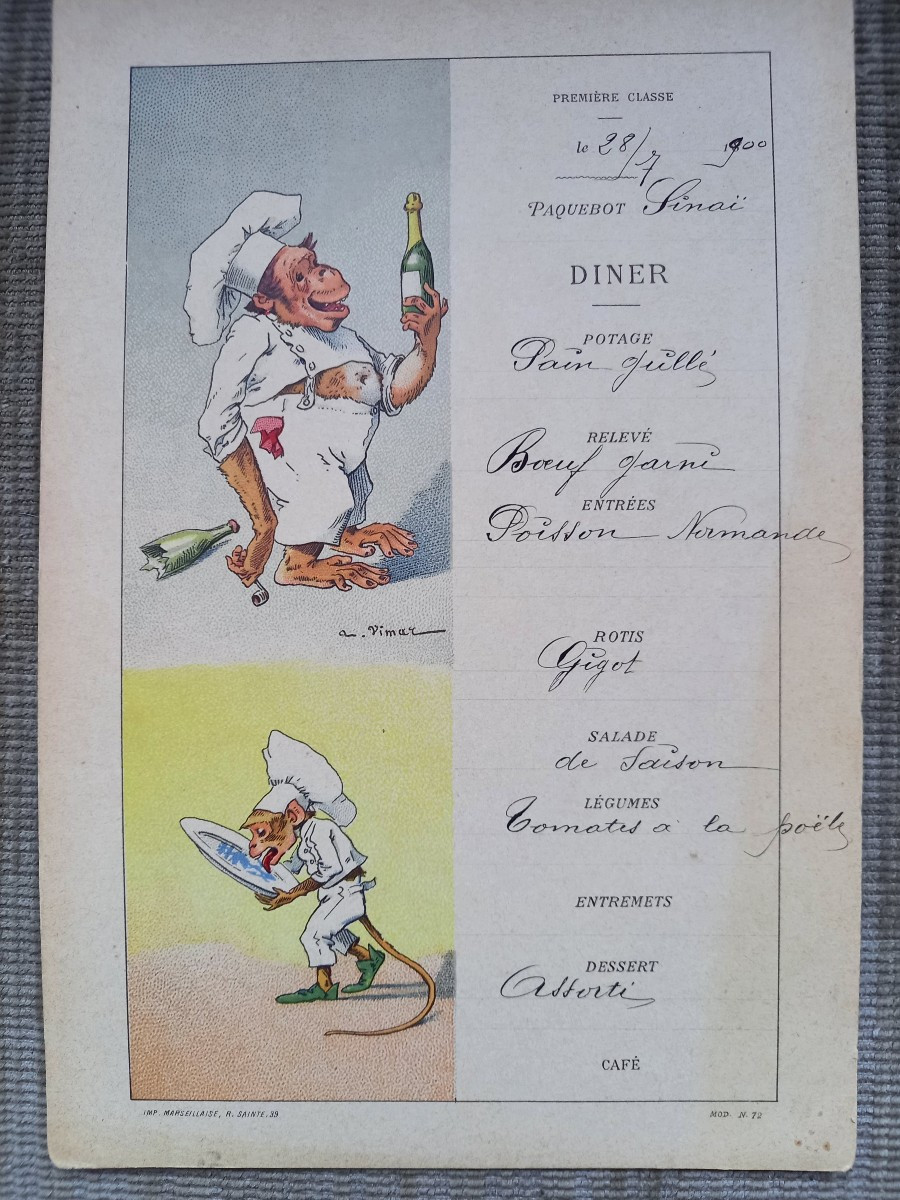 PREMIÈRE CLASSE
le 28/7 1900
PAQUEBOT Sinaï
DINER
POTAGE
Pain
RELEVÉ
Bœuf garni
ENTRÉES
Poisson Normande
ROTIS
Gigot
SALADE
de Saison
LÉGUMES
Tomates à la poële
ENTREMETS
DESSERT
Assorti
CAFÉ
A. Vimar
IMP. MARSEILLAISE, R. SAINTE. 39
MOD. N. 72